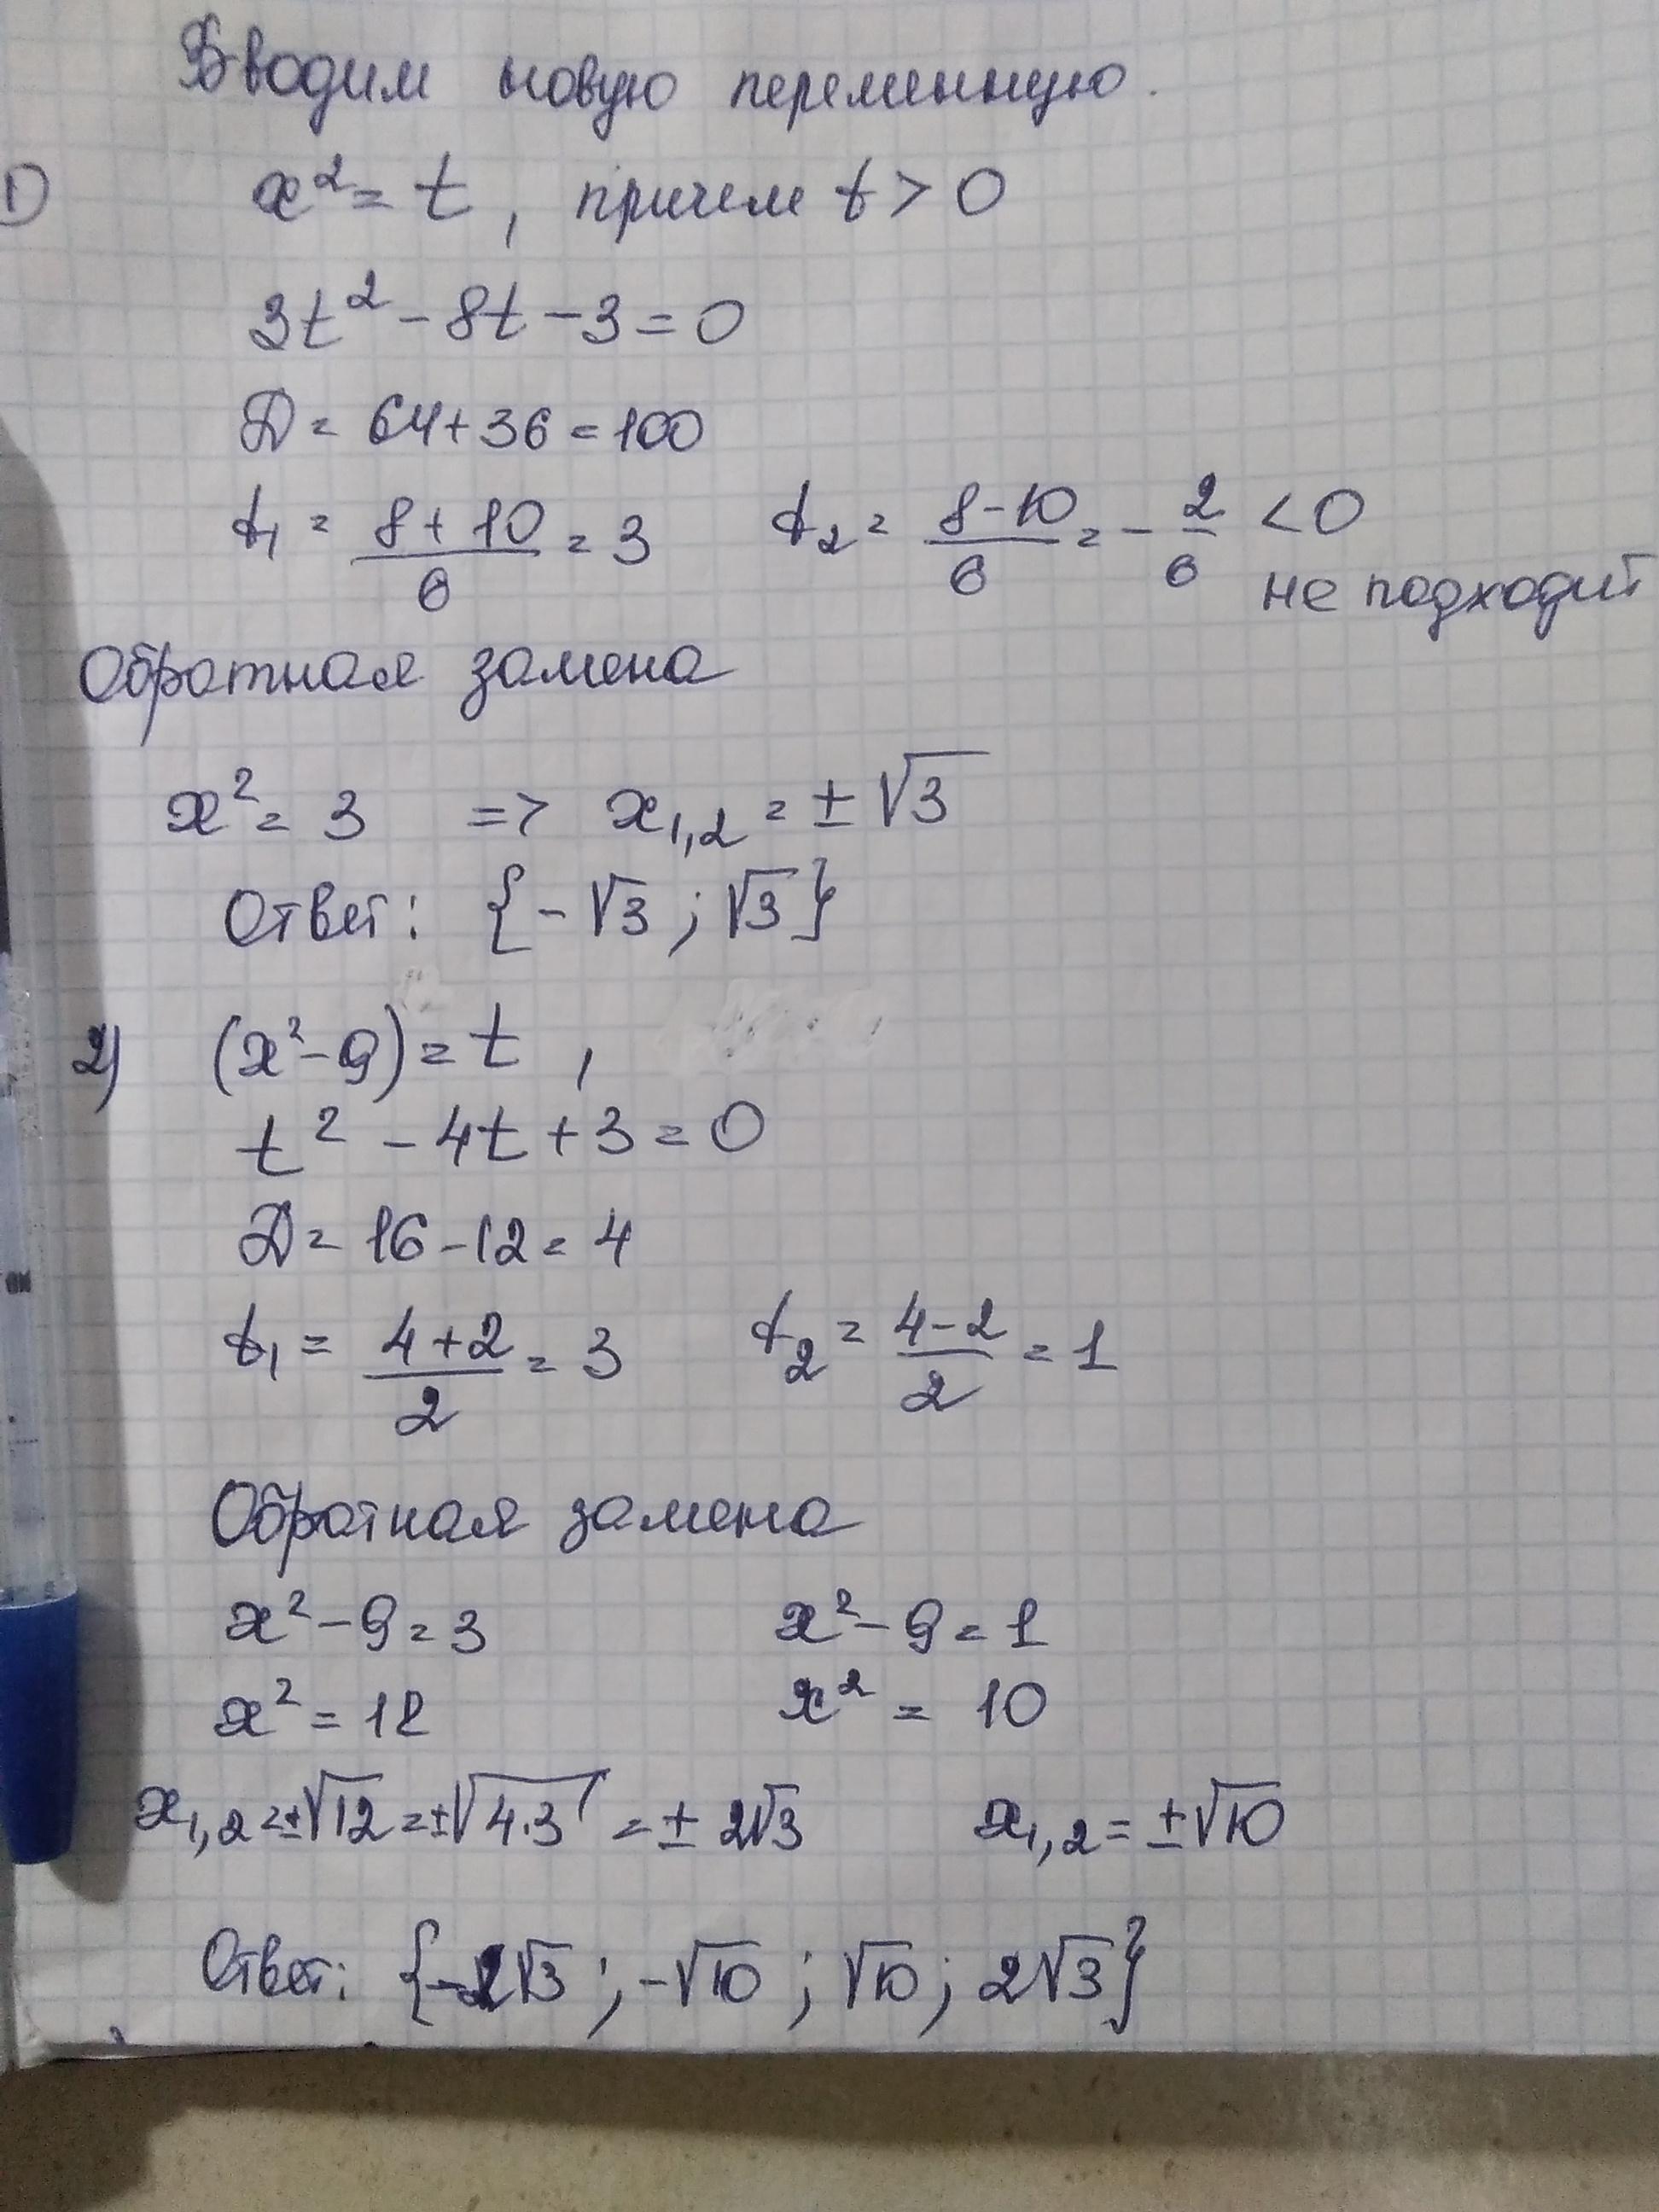 Вводим новую переменную.
1) x² = t, причем t > 0
3t² - 8t - 3 = 0
D = 64 + 36 = 100
t₁ = (8 + 10)/6 = 3 t₂ = (8 - 10)/6 = - 2/6 < 0
не подходит
Обратная замена
x² = 3 => x₁,₂ = ± √3
Ответ: {-√3 ; √3}
2) (x² - 9) = t ,
t² - 4t + 3 = 0
D = 16 - 12 = 4
t₁ = (4 + 2)/2 = 3 t₂ = (4 - 2)/2 = 1
Обратная замена
x² - 9 = 3 x² - 9 = 1
x² = 12 x² = 10
x₁,₂ = ±√12 = ±√4·3 = ± 2√3 x₁,₂ = ±√10
Ответ: {-2√3 ; -√10 ; √10 ; 2√3}